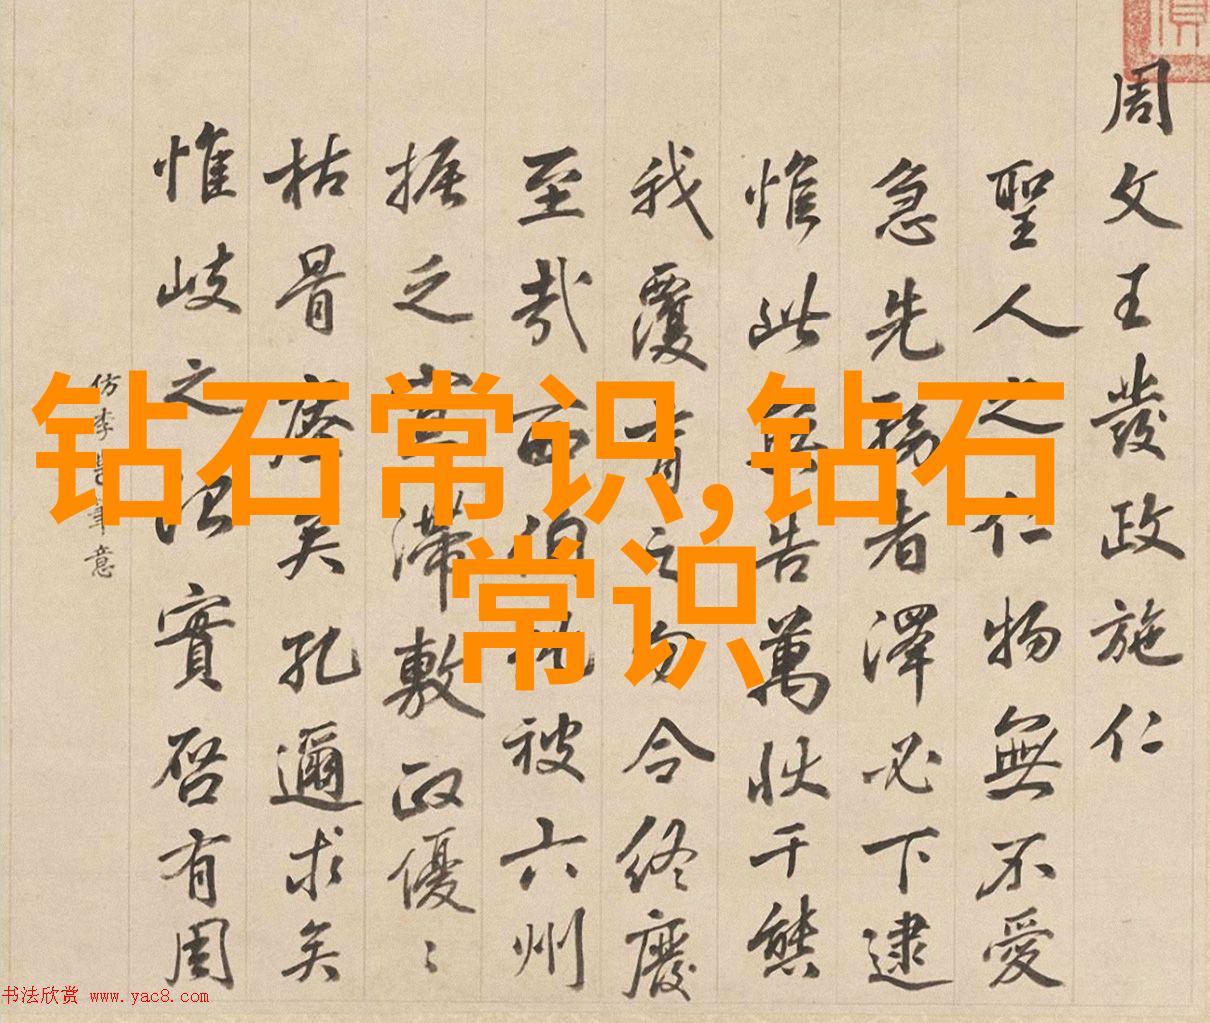 周文王發政施仁
聖人之仁物無不愛
急先務者澤必下逮
惟此無告萬狀千態
我覆育之勿令終廢
至哉西伯化被六州
振乏滯敷政優〻
枯骨矣孔邇求矣
惟岐之治實啓有周
仿李邕筆意
钻石常识,钻石
常识
书法欣赏 www.yac8.com